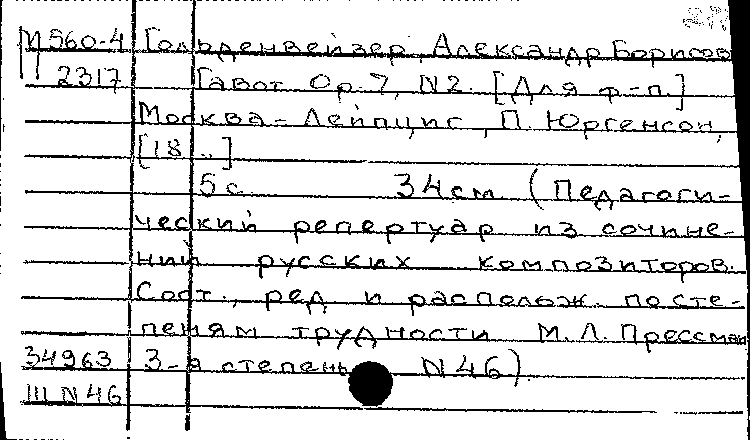 М 560-4 Гольденвейзер, Александр Борисов
2317 Гавот Op. 7, N2. [Для ф-п.]
Москва-Лейпциг, П. Юргенсон,
[18..]
5 с 34 см (Педагоги-
ческий репертуар из сочине-
ний русских композиторов.
Сост., ред и располож. по сте-
пеням трудности М. Л. Прессман
34963 3-я степень N46).
III N46